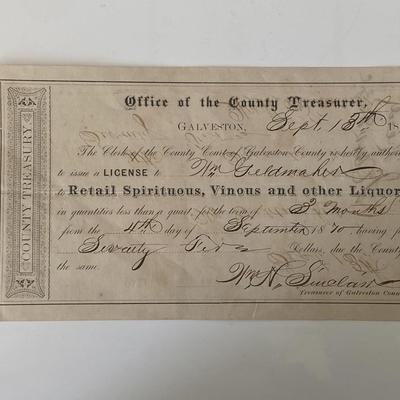 COUNTY TREASURY
Office of the County Treasurer,
GALVESTON, Sept 13th 18
The Clerk of the County Court of Galveston County is hereby authori
to issue a LICENSE to Wm Geldmaher
to Retail Spirituous, Vinous and other Liquor
in quantities less than a quart, for the term of 3 Months
from the 4th day of September 1870, having
Seventy Five Dollars, due the County
the same.
Wm H. Sinclair
Treasurer of Galveston Coun